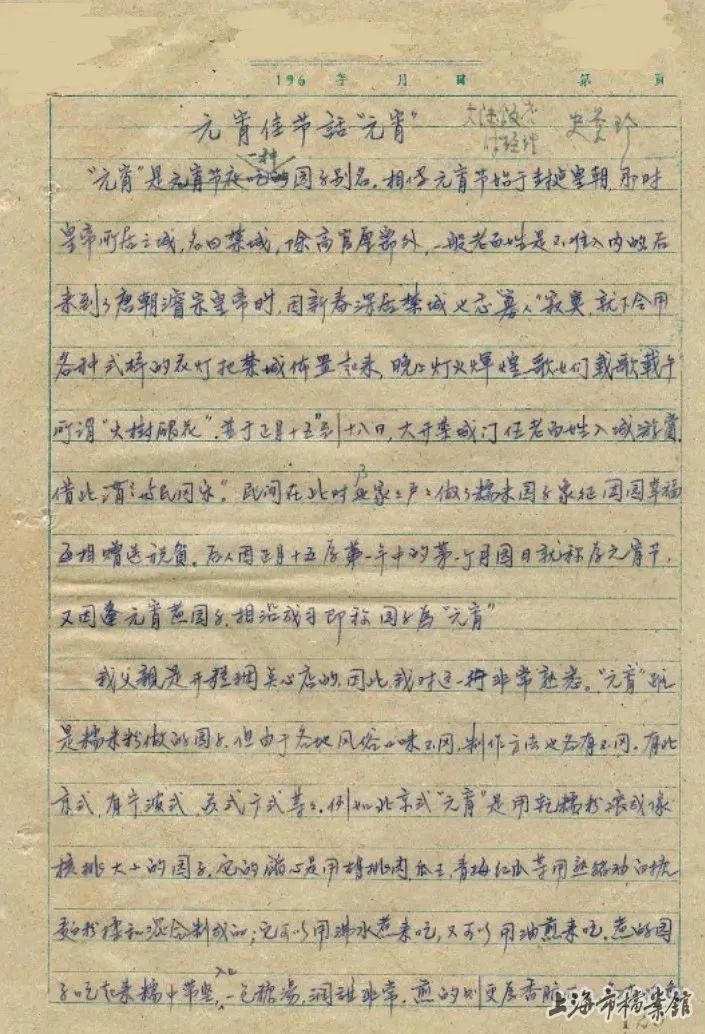 196 年 月 日 第 页
元宵佳节話"元宵"
史美珍
一种
"元宵"是元宵节夜吃的团子别名。相传元宵节始于封建皇朝,那时
皇帝所居之城,名曰禁城,除高官厚爵外,一般老百姓是不准入内的后
来到了唐朝濬宗皇帝时,因新春深居禁城也忒"寡人"寂寞,就下令用
各种式样的衣灯把禁城佈置起来,晚上灯火辉煌歌女们载歌载午
所谓"火樹银花"。並于正月十五到十八日,大开禁城门任老百姓入城遊賞,
借此谓之"与民同乐"。民间在此时家家户户做了糯米团子象征团圆幸福
互相赠送祝贺。后人因正月十五居第一年中的第一个月圆日就称存元宵节,
又因逢元宵煮团子,相沿成习即称团子為"元宵"
我父親是开糕糰点心店的,因此,我对这一行非常熟悉。"元宵"虽
是糯米粉做的团子,但由于各地风俗口味不同,制作方法也各有不同。有北
京式,有宁波式,苏式广式等等。例如北京式"元宵"是用乾糯粉滚成像
核桃大小的团子,它的馅心是用胡桃肉,瓜子,青梅红瓜等用熟猪油白糖
麵粉揉和混合制成的;它可以用沸水煮来吃,又可以用油煎来吃。煮的团
子吃起来糯中带坚,一包糖湯,润甜非常。煎的则更居香脆
上海市檔案館